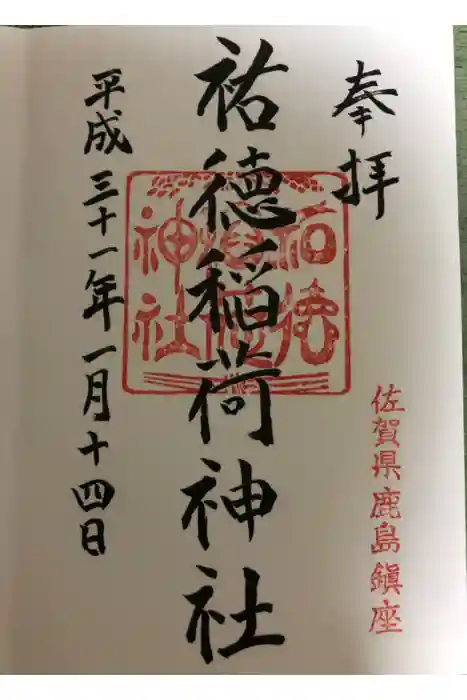 奉拝
佐賀県鹿島鎮座
祐徳稲荷神社
祐徳
稲荷
神社
平成三十一年一月十四日